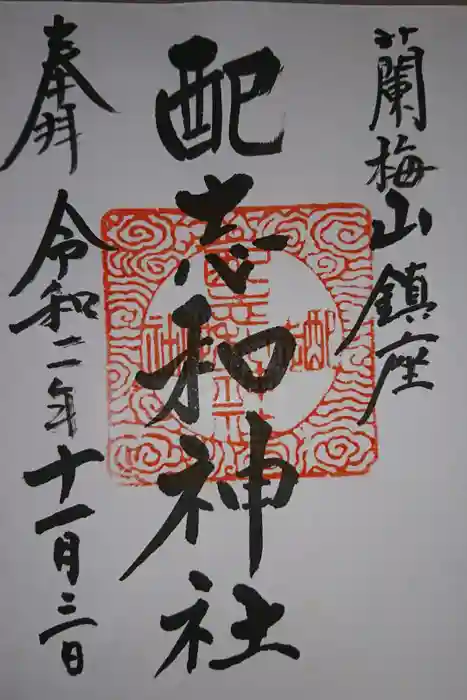 蘭梅山鎮座
配志和神社
奉拜
令和二年十一月三日